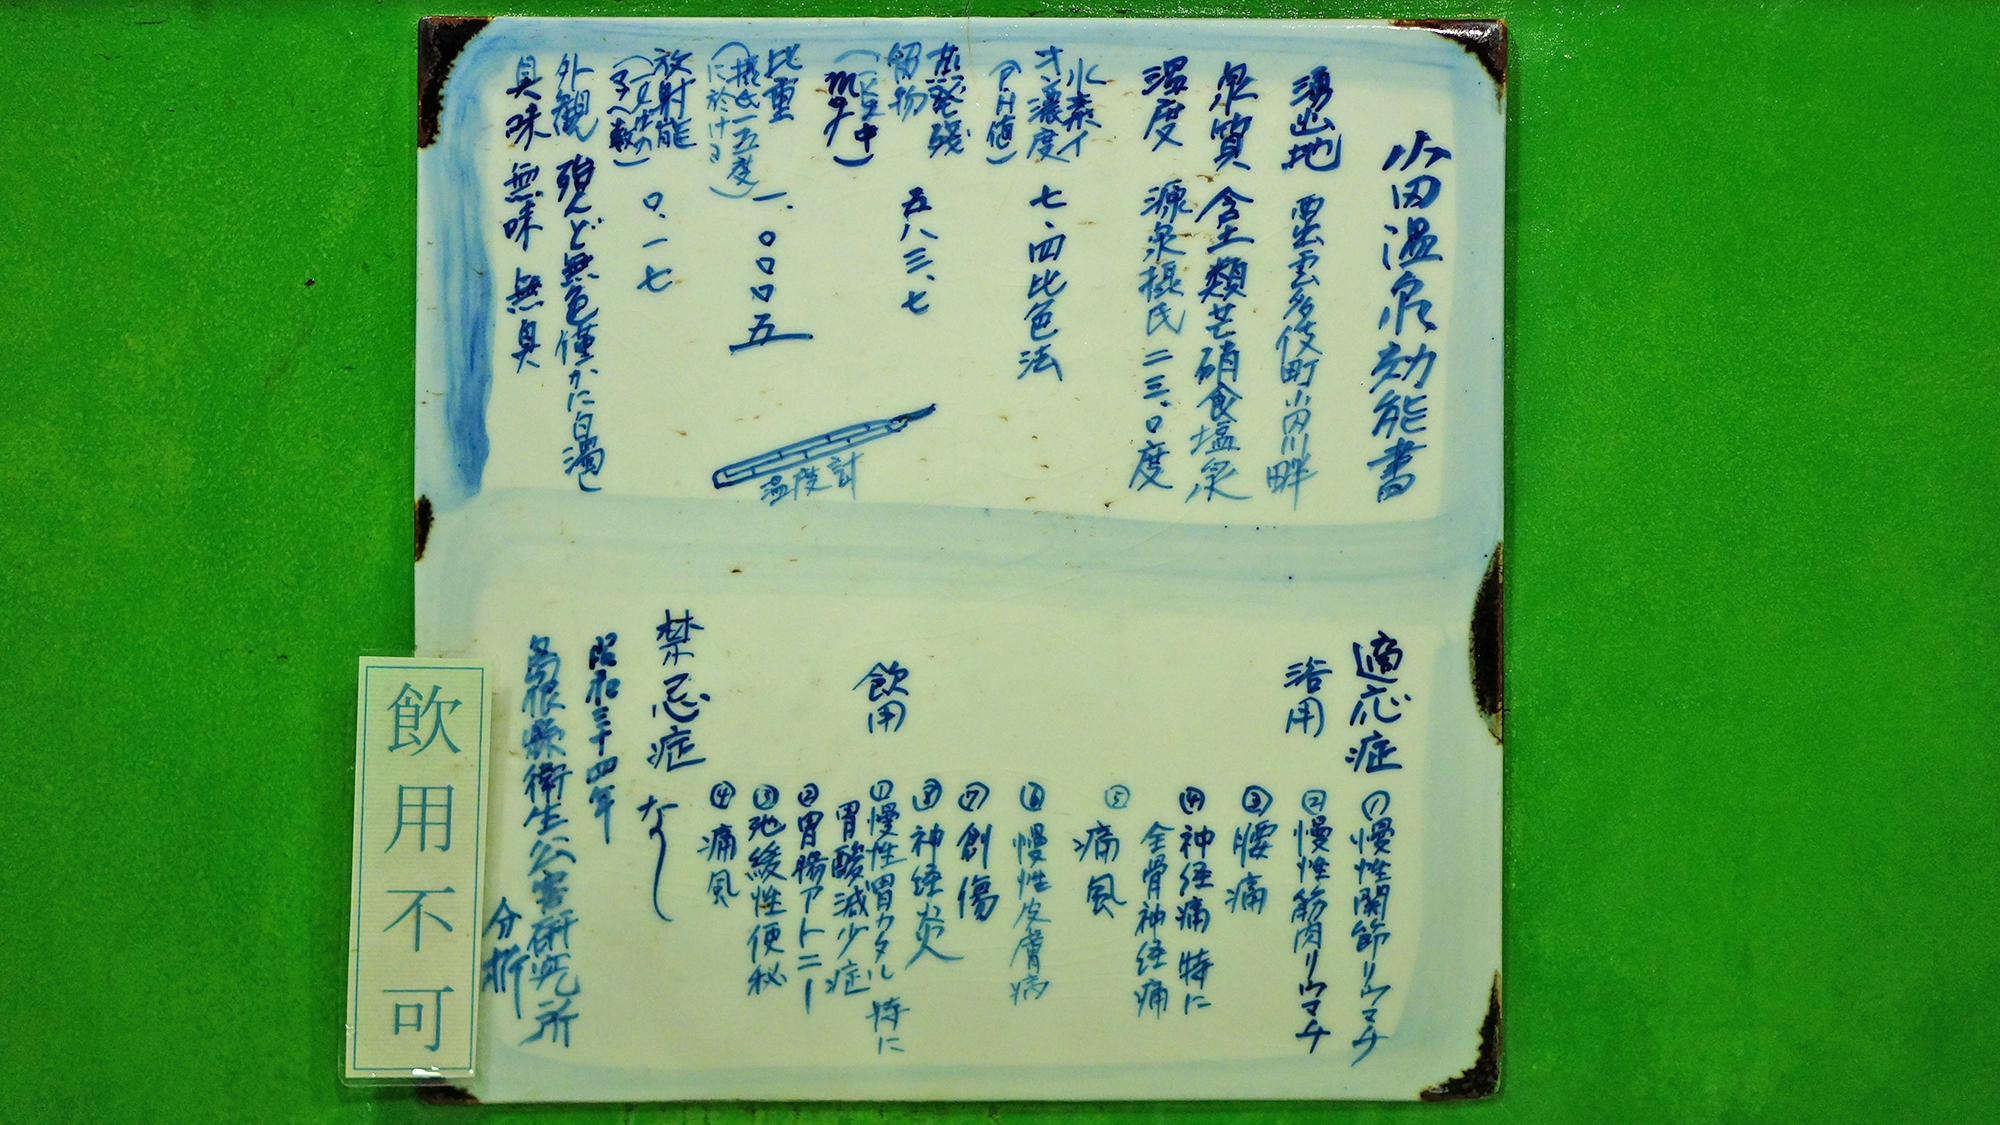 小田温泉効能書
湧出地 西出雲多伎町小田川畔
泉質 含土類芒硝食塩泉
温度 源泉摂氏二三、〇度
水素イオン濃度(PH値) 七、四比色法
蒸発残留物(一K中mg) 五八三、七
比重(摂氏一五度に於ける) 一、〇〇〇五
放射能
〇、一七
外観 殆んど無色僅かに白濁し
臭味 無味 無臭
温度計
適応症
浴用
①慢性関節リウマチ
②慢性筋肉リウマチ
③腰痛
④神経痛 特に
全骨神経痛
⑤痛風
⑥慢性皮膚病
⑦創傷
⑧神経炎
飲用
①慢性胃カタル 特に
胃酸減少症
②胃腸アトニー
③弛緩性便秘
④痛風
禁忌症 なし
昭和三十四年
島根県衛生公害研究所
分析
飲用不可